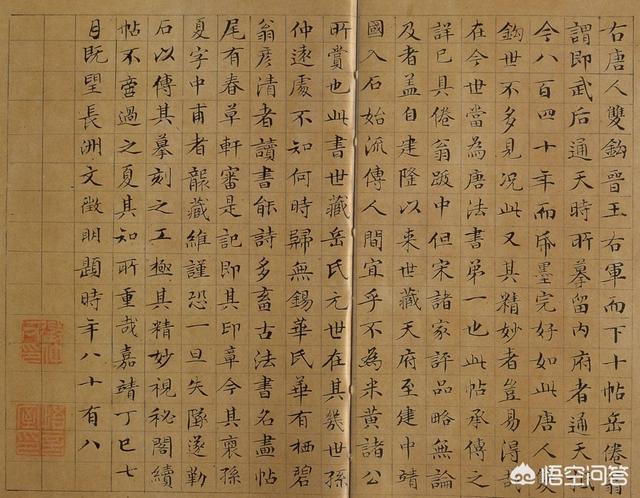 右唐人雙鈎晉王右軍而下十帖岳倦翁
謂即武后通天時所摹留内府者通天
今八百四十年而帋墨完好如此唐人
鈎世不多見況此又其精妙者豈易得哉
在今世當為唐法書第一也此帖承傳之
詳已具倦翁跋中但宋諸家評品略無論
及者盖自建隆以来世藏天府至建中靖
國入石始流傳人間宜乎不為米黄諸公
所賞也此書世藏岳氏元世在其幾世孫
仲遠處不知何時歸無錫華氏華有栖碧
翁彦清者讀書能詩多畜古法書名畫帖
尾有春草軒審是記即其印章今其裔孫
夏字中甫者襲藏維謹恐一旦失墜遂勒
石以傳其摹刻之工極其精妙視秘閣續
帖不啻過之夏其知所重哉嘉靖丁巳七
月既望長洲文徵明題時年八十有八
悟空问答